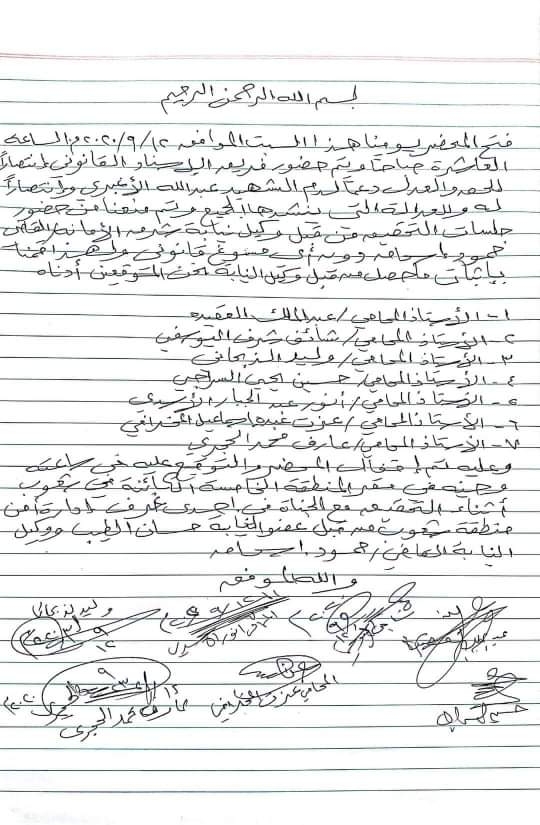 بسم الله الرحمن الرحيم
فتح المحضر يومنا هذا السبت الموافق ١٢/٩/٢٠٢٠م الساعة
العاشرة صباحاً وتم حضور فريق الإسناد القانوني إنتصاراً
للحق والعدل دعماً لدم الشهيد عبدالله الأغبري وانتصاراً
له ولعدالة التي ينشدها الجميع وتم منعنا من حضور
جلسات التحقيق من قبل وكيل نيابة شرق الأمانة القاضي
حمود دون أي مسوغ قانوني ولهذا قمنا
بإثبات ما حصل من قبل وكيل النيابة نحن الموقعين أدناه
١- الأستاذ المحامي/ عبدالملك العقيدة
٢- الأستاذ المحامي/ شائق شرف اليوسفي
٣- الأستاذ المحامي/ وليد
٤- الأستاذ المحامي/ حسين يحيى السراجي
٥- الأستاذ المحامي/ أنور عبدالجبار الأسدي
٦- الأستاذ المحامي/ عزت عبده اسماعيل
٧- الأستاذ المحامي/ عارف محمد الحجري
وعليه تم إقفال المحضر والتوقيع عليه في ساعته
وحينه في مقر المنطقة الخامسة الكائنة في شعوب
أثناء التحقيق مع الجناة في إحدى غرف إدارة أمن
منطقة شعوب من قبل عضو النيابة حسان الطيب ووكيل
النيابة القاضي/ حمود
والله الموفق
وليد
المحامي عزت
عارف محمد الحجري
حسين السراجي